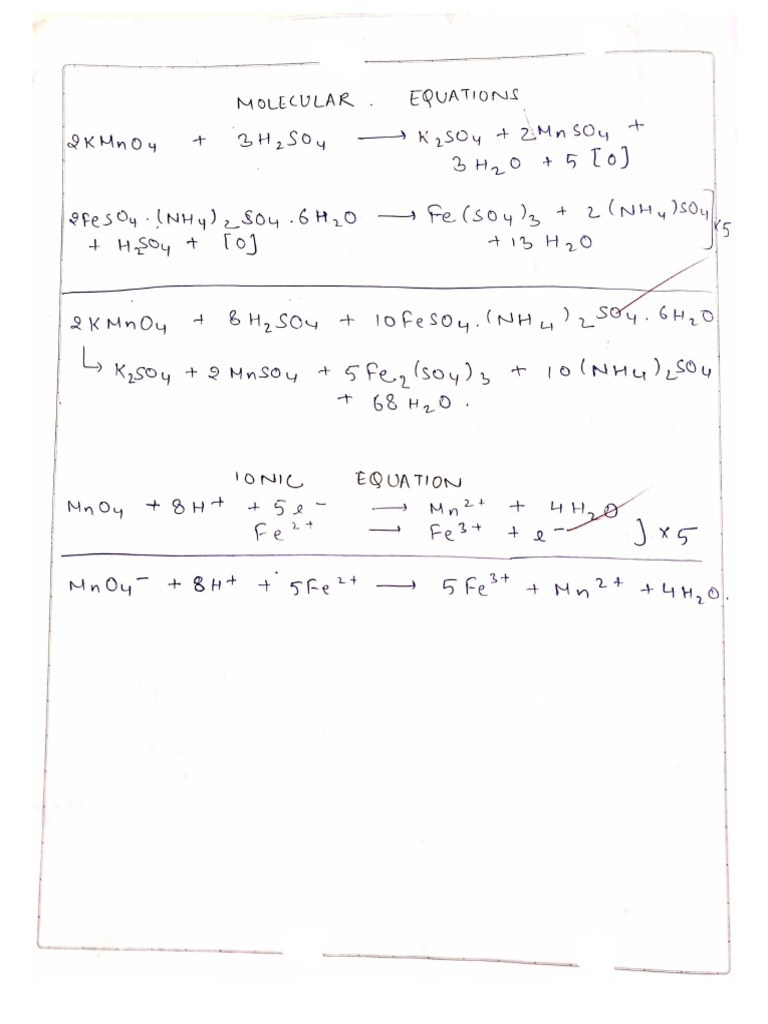 MOLECULAR . EQUATIONS
2KMnO4 + 3H2SO4 ⟶ K2SO4 + 2MnSO4 +
3H2O + 5[O]
2FeSO4.(NH4)2SO4.6H2O ⟶ Fe(SO4)3 + 2(NH4)SO4 ] ×5
+ H2SO4 + [O] + 13 H2O
2KMnO4 + 8H2SO4 + 10FeSO4.(NH4)2SO4.6H2O
↳ K2SO4 + 2MnSO4 + 5Fe2(SO4)3 + 10(NH4)2SO4
+ 68H2O.
IONIC EQUATION
MnO4 + 8H+ + 5e- ⟶ Mn2+ + 4H2O
Fe2+ ⟶ Fe3+ + e- ] ×5
MnO4- + 8H+ + 5Fe2+ ⟶ 5Fe3+ + Mn2+ + 4H2O.